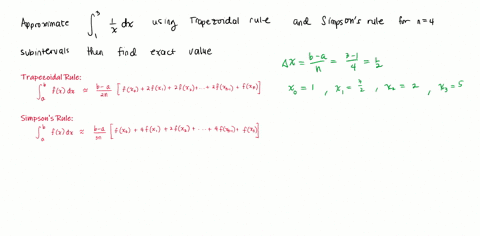 Approximate ∫₁³ 1/x dx using Trapezoidal rule and Simpson's rule for n=4
subintervals then find exact value
Δx = (b-a)/n = (3-1)/4 = 1/2
x₀ = 1 , x₁ = 3/2 , x₂ = 2 , x₃ = 5
Trapezoidal Rule:
∫ₐᵇ f(x) dx ≈ (b-a)/2n [ f(x₀) + 2f(x₁) + 2f(x₂) + ... + 2f(xₙ₋₁) + f(xₙ) ]
Simpson's Rule:
∫ₐᵇ f(x) dx ≈ (b-a)/3n [ f(x₀) + 4f(x₁) + 2f(x₂) + ... + 4f(xₙ₋₁) + f(xₙ) ]